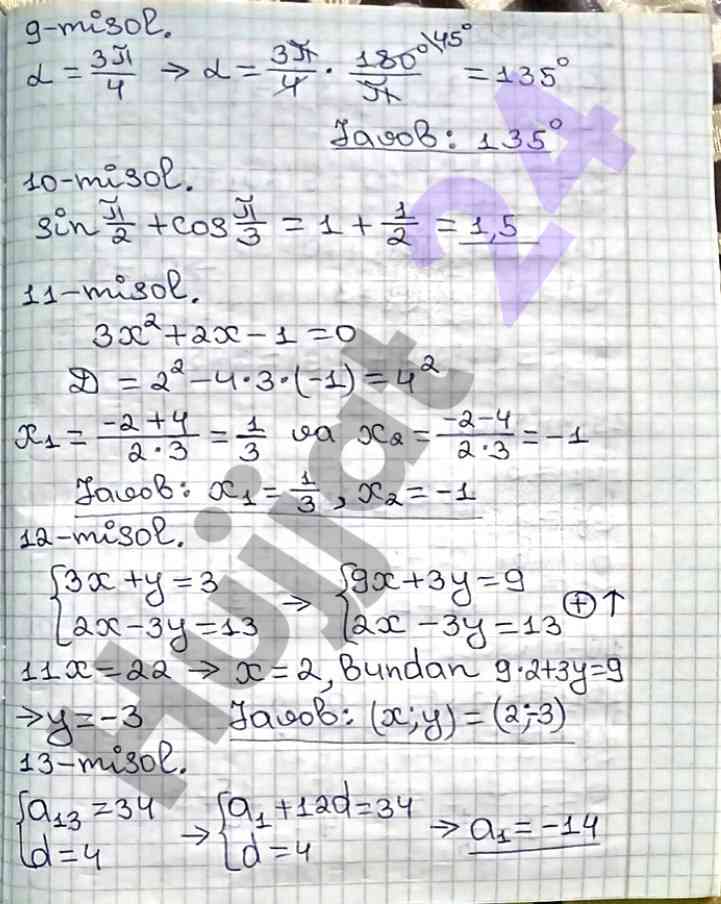 9-misol.
α = 3π/4 → α = 3π/4 · 180°\45°/π = 135°
Javob: 135°
10-misol.
sin π/2 + cos π/3 = 1 + 1/2 = 1,5
11-misol.
3x² + 2x - 1 = 0
D = 2² - 4·3·(-1) = 4²
x₁ = (-2+4)/(2·3) = 1/3 va x₂ = (-2-4)/(2·3) = -1
Javob: x₁ = 1/3, x₂ = -1
12-misol.
{3x + y = 3 → {9x + 3y = 9
{2x - 3y = 13 {2x - 3y = 13 ⊕↑
11x = 22 → x = 2, Bundan 9·2+3y=9
→ y = -3 Javob: (x; y) = (2; -3)
13-misol.
{a₁₃ = 34 → {a₁ + 12d = 34 → a₁ = -14
{d = 4 {d = 4
Hujjat 24